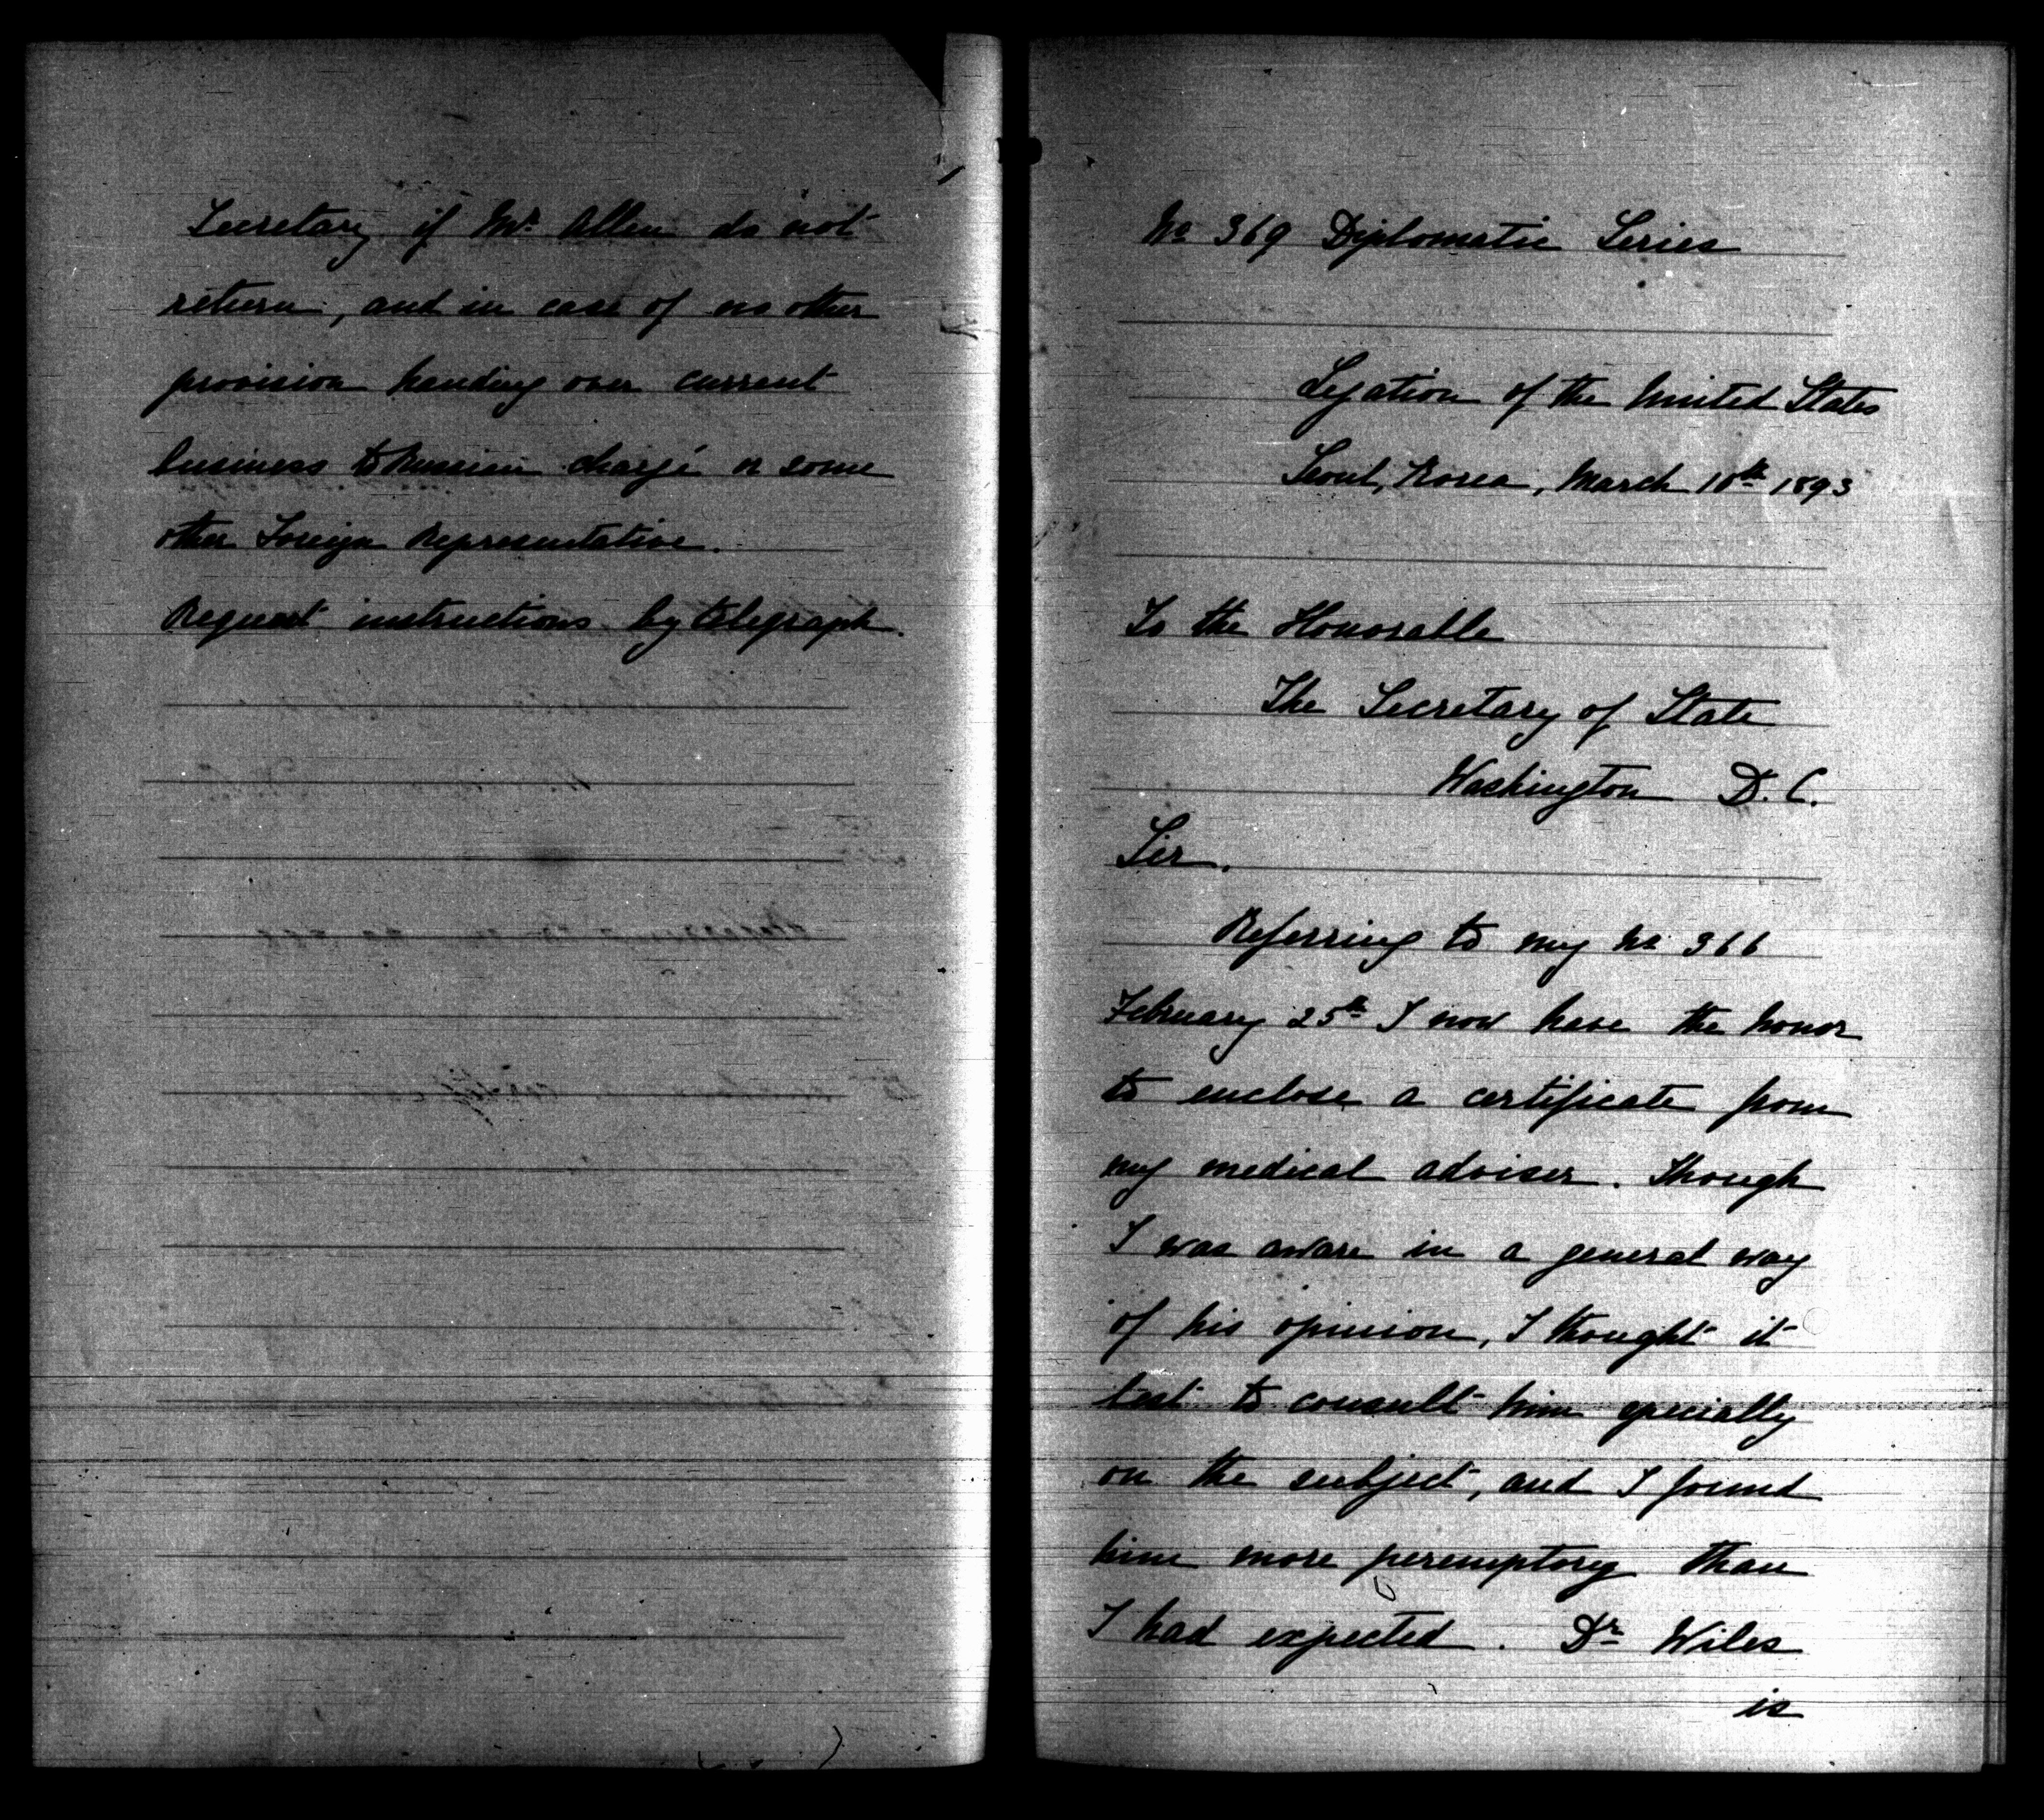 Secretary if Mr. Allen do not
return, and in case of no other
provision handing over current
business to Russian chargé or some
other Foreign Representative.
Request instructions by telegraph.
No 369 Diplomatic Series
Legation of the United States
Seoul, Korea, March 10th 1893
To the Honorable
The Secretary of State
Washington D.C.
Sir,
Referring to my No 366
February 25th I now have the honor
to enclose a certificate from
my medical adviser. Though
I was aware in a general way
of his opinion, I thought it
best to consult him specially
on the subject, and I found
him more peremptory than
I had expected. Dr Wiles
is